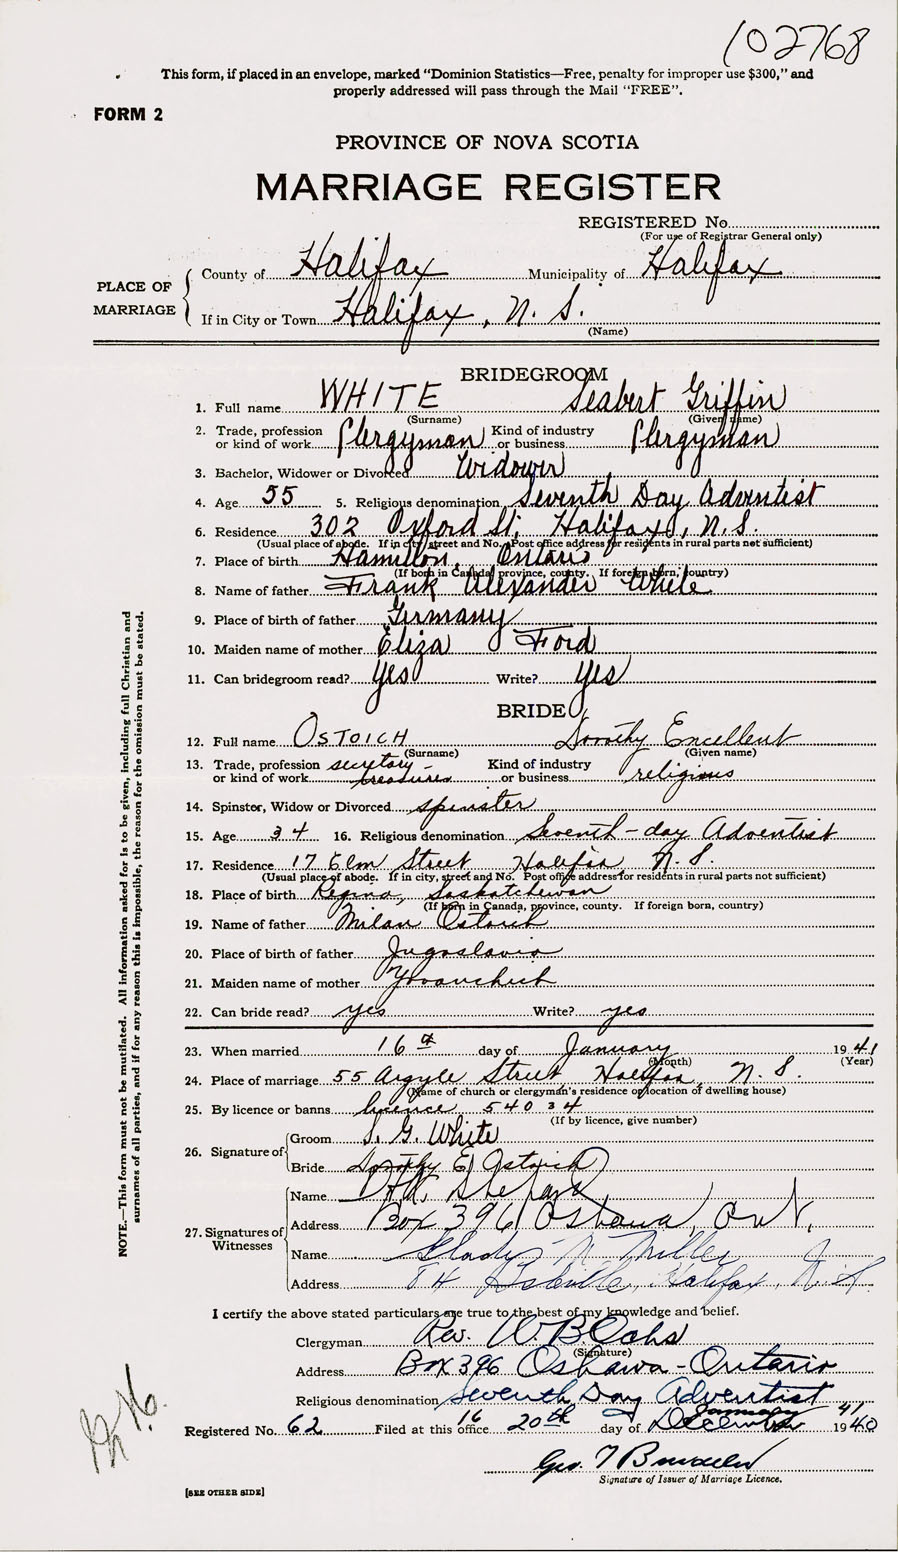 102768
This form, if placed in an envelope, marked "Dominion Statistics—Free, penalty for improper use $300," and
properly addressed will pass through the Mail "FREE".
FORM 2
PROVINCE OF NOVA SCOTIA
MARRIAGE REGISTER
REGISTERED No
(For use of Registrar General only)
PLACE OF MARRIAGE
County of Halifax Municipality of Halifax
If in City or Town Halifax, N. S.
(Name)
BRIDEGROOM
1. Full name WHITE Seabert Griffin
(Surname) (Given name)
2. Trade, profession or kind of work Clergyman Kind of industry or business Clergyman
3. Bachelor, Widower or Divorced Widower
4. Age 55 5. Religious denomination Seventh Day Adventist
6. Residence 302 Oxford St, Halifax, N.S.
(Usual place of abode. If in city, street and No. Post office address for residents in rural parts not sufficient)
7. Place of birth Hamilton, Ontario
(If born in Canada, province, county. If foreign born, country)
8. Name of father Frank Alexander White
9. Place of birth of father Germany
10. Maiden name of mother Eliza Ford
11. Can bridegroom read? Yes Write? Yes
BRIDE
12. Full name OSTOICH Dorothy Encellent
(Surname) (Given name)
13. Trade, profession or kind of work secretary - treasurer Kind of industry or business religious
14. Spinster, Widow or Divorced spinster
15. Age 34 16. Religious denomination Seventh-day Adventist
17. Residence 17 Elm Street Halifax, N. S.
(Usual place of abode. If in city, street and No. Post office address for residents in rural parts not sufficient)
18. Place of birth Regina, Saskatchewan
(If born in Canada, province, county. If foreign born, country)
19. Name of father Milan Ostoich
20. Place of birth of father Jugoslavia
21. Maiden name of mother
22. Can bride read? yes Write? yes
23. When married 16th day of January 1941
(Month) (Year)
24. Place of marriage 55 Argyle Street Halifax, N. S.
(Name of church or clergyman's residence or location of dwelling house)
25. By licence or banns licence 54034
(If by licence, give number)
26. Signature of
Groom S. G. White
Bride Dorothy E. Ostoich
27. Signatures of Witnesses
Name Shepard
Address Box 396 Oshawa, Ont.
Name Gladys N. Miller
Address Halifax, N.S.
I certify the above stated particulars are true to the best of my knowledge and belief.
Clergyman Rev. W. B. Ochs
(Signature)
Address Box 396 Oshawa - Ontario
Religious denomination Seventh Day Adventist
Registered No. 62 Filed at this office 16 20th day of January December 41 1940
Geo.
Signature of Issuer of Marriage Licence.
[SEE OTHER SIDE]
NOTE.—This form must not be mutilated. All information asked for is to be given, including full Christian and
surnames of all parties, and if for any reason this is impossible, the reason for the omission must be stated.